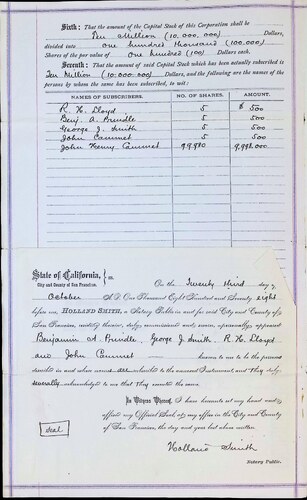 Sixth: That the amount of the Capital Stock of this Corporation shall be
Ten Million (10,000,000) Dollars,
divided into one hundred thousand (100,000)
Shares of the par value of One hundred (100) Dollars each.
Seventh: That the amount of said Capital Stock which has been actually subscribed is
Ten Million (10,000,000) Dollars, and the following are the names of the
persons by whom the same has been subscribed, to wit:
NAMES OF SUBSCRIBERS. NO. OF SHARES. AMOUNT.
R. H. Lloyd 5 $ 500
Benj. A. Brindle 5 500
George J. Smith 5 500
John Cammet 5 500
John Henry Cammet 99,980 9,998,000
State of California, } ss.
City and County of San Francisco.
On the Twenty third day of
October A.D. One Thousand Eight Hundred and Seventy eight
before me, HOLLAND SMITH, a Notary Public in and for said City and County of
San Francisco, residing therein, duly commissioned and sworn, personally appeared
Benjamin A. Brindle, George J. Smith, R. H. Lloyd
and John Cammet known to me to be the persons
described in and whose names are subscribed to the annexed Instrument, and They duly
severally acknowledged to me that They executed the same.
In Witness Whereof, I have hereunto set my hand and
affixed my Official Seal, at my office in the City and County
of San Francisco, the day and year last above written.
seal
Holland Smith
Notary Public.